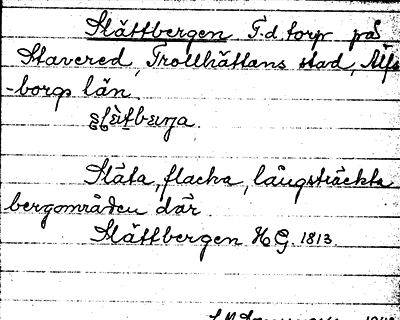 Slättbergen F.d. torp på
Stavered, Trollhättans stad, Älfs
-borgs län
Släta, flacka, långsträckta
bergområden där.
Slättbergen H.G. 1813.